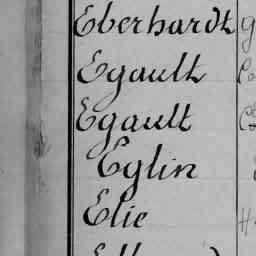 Eberhardt
Egault
Egault
Eglin
Elie